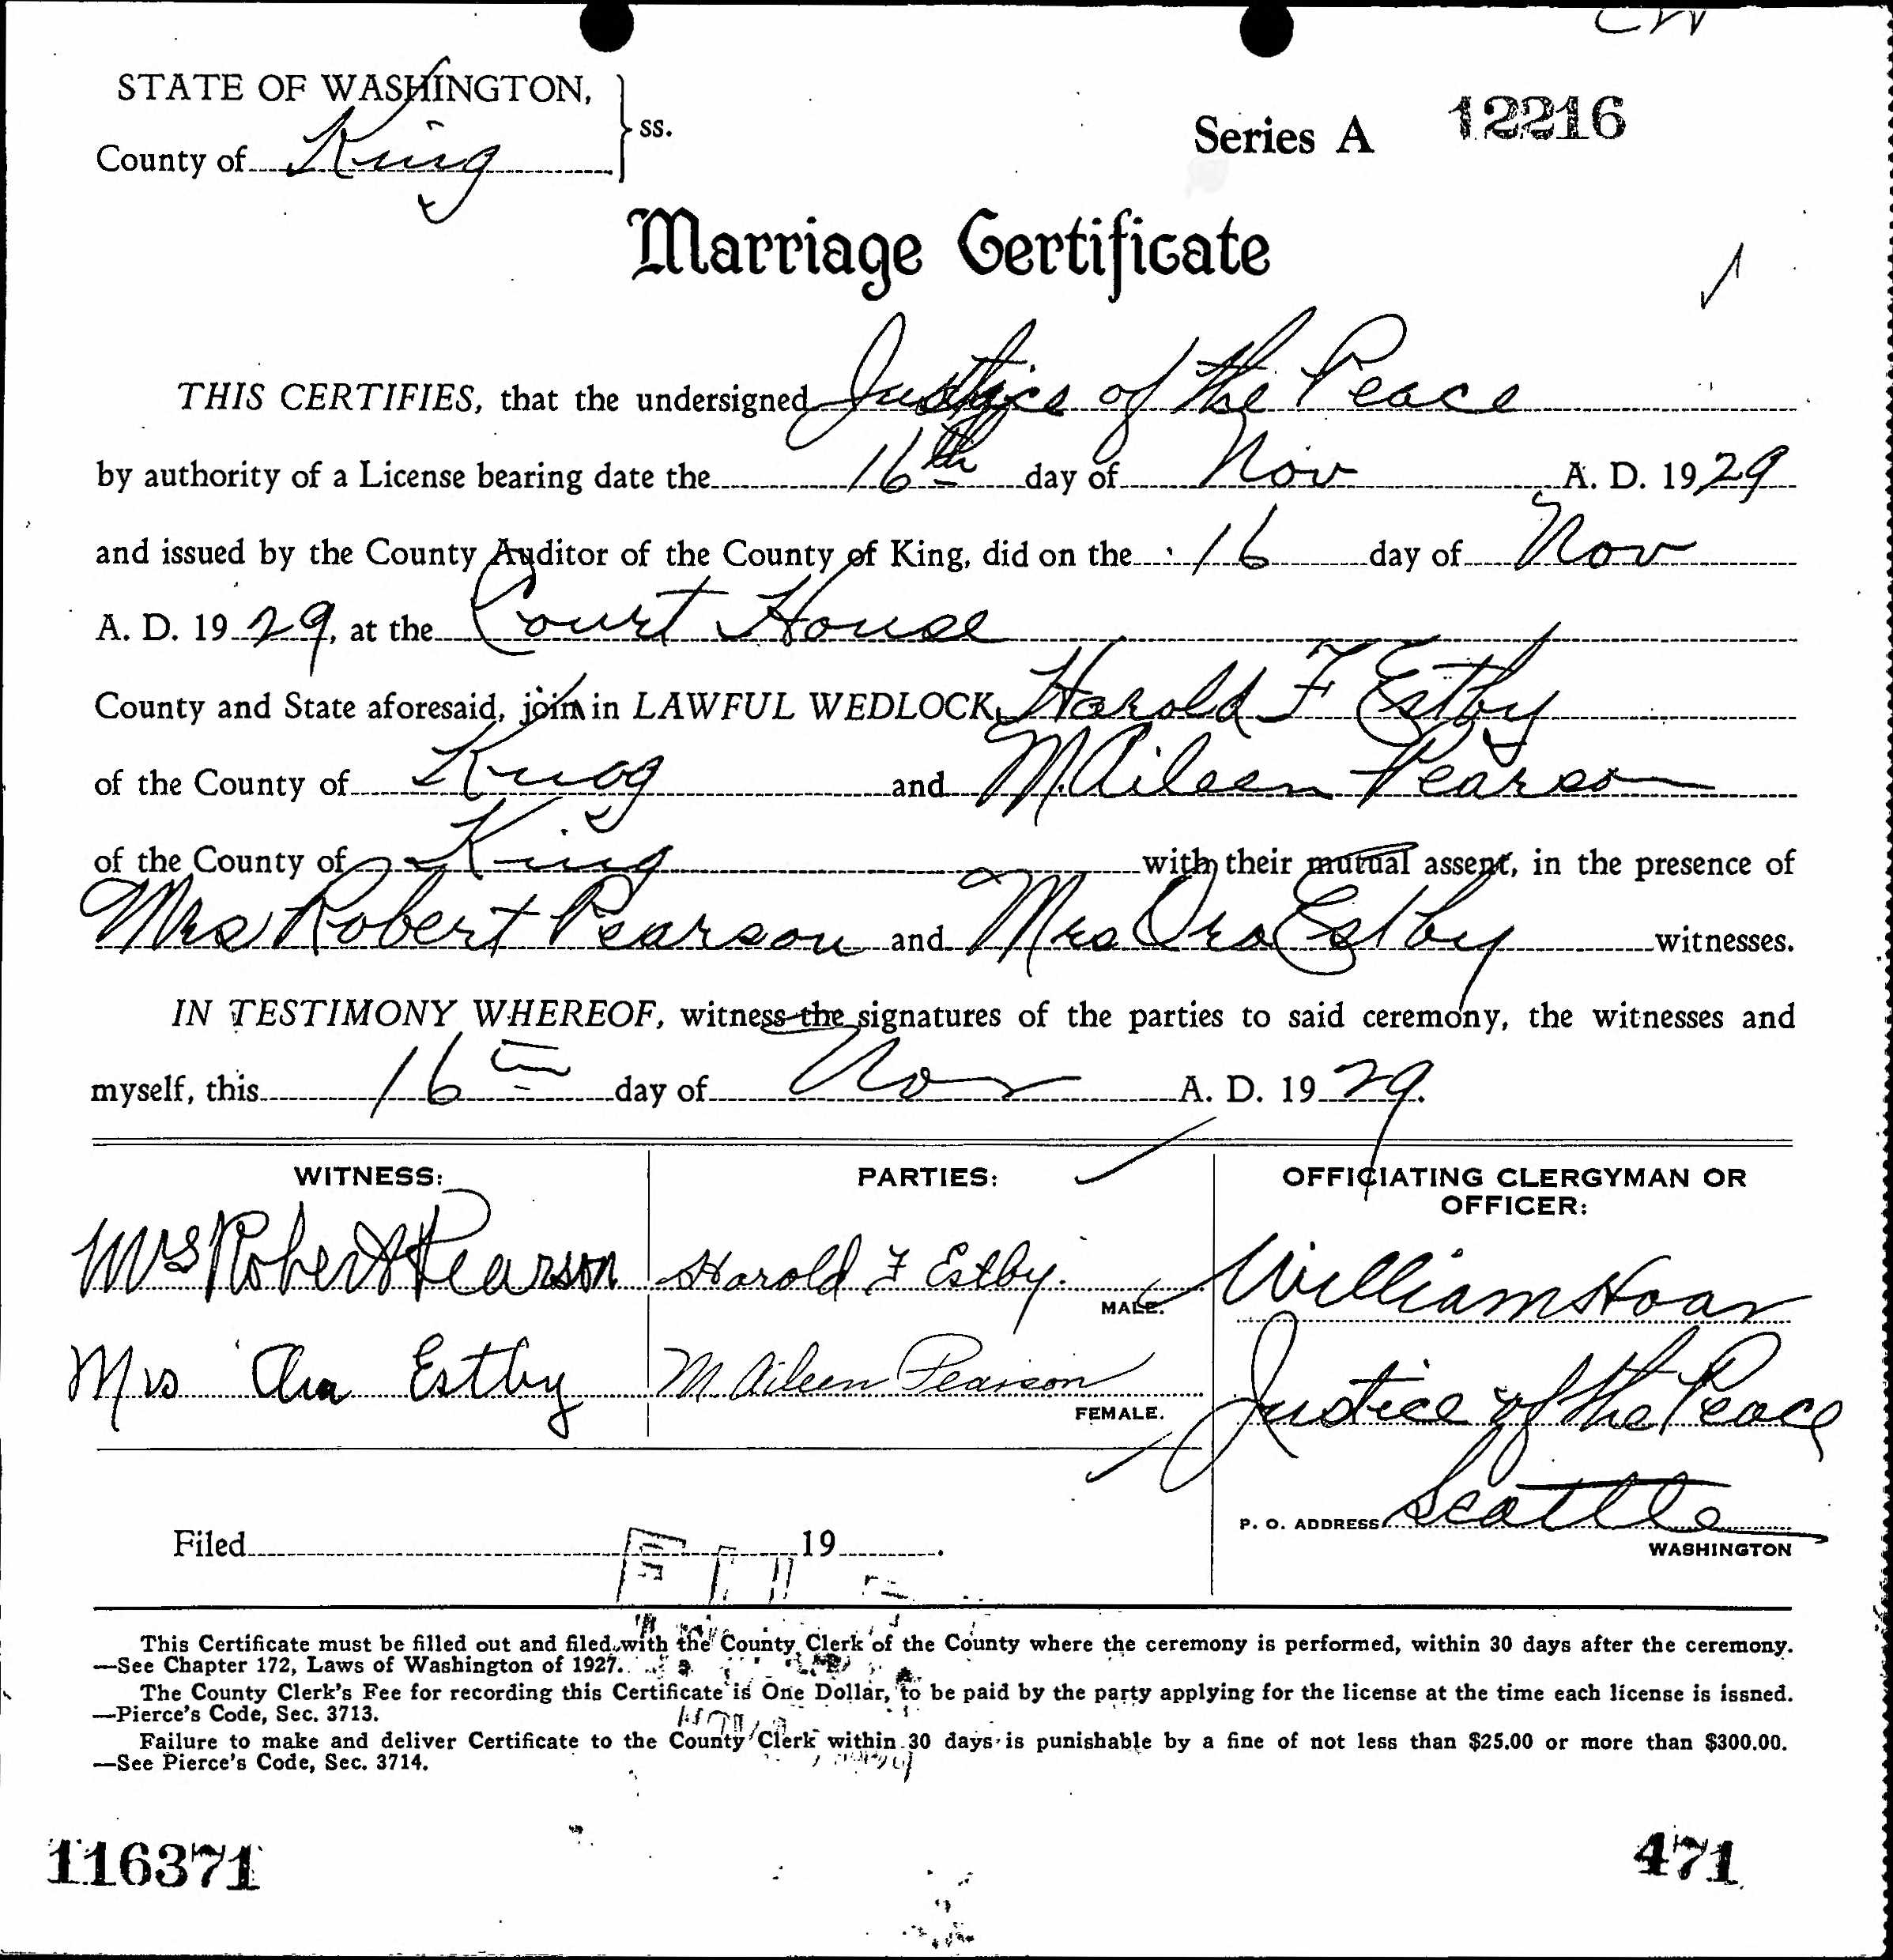 STATE OF WASHINGTON,
ss.
County of King
Series A 12216
Marriage Certificate
THIS CERTIFIES, that the undersigned Justice of the Peace
by authority of a License bearing date the 16th day of Nov A. D. 1929
and issued by the County Auditor of the County of King, did on the 16 day of Nov
A. D. 1929, at the Court House
County and State aforesaid, join in LAWFUL WEDLOCK, Harold F Estby
of the County of King and M. Aileen Pearson
of the County of King with their mutual assent, in the presence of
Mrs Robert Pearson and Mrs Ora Estby witnesses.
IN TESTIMONY WHEREOF, witness the signatures of the parties to said ceremony, the witnesses and
myself, this 16th day of Nov A. D. 1929.
WITNESS: PARTIES: OFFICIATING CLERGYMAN OR
OFFICER:
Mrs Robert Pearson Harold F Estby. William Hoar
MALE.
Mrs Ora Estby M. Aileen Pearson Justice of the Peace
FEMALE.
P. O. ADDRESS Seattle
Filed 19 .
WASHINGTON
This Certificate must be filled out and filed with the County Clerk of the County where the ceremony is performed, within 30 days after the ceremony.
—See Chapter 172, Laws of Washington of 1927.
The County Clerk's Fee for recording this Certificate is One Dollar, to be paid by the party applying for the license at the time each license is issned.
—Pierce's Code, Sec. 3713.
Failure to make and deliver Certificate to the County Clerk within 30 days is punishable by a fine of not less than $25.00 or more than $300.00.
—See Pierce's Code, Sec. 3714.
116371 471